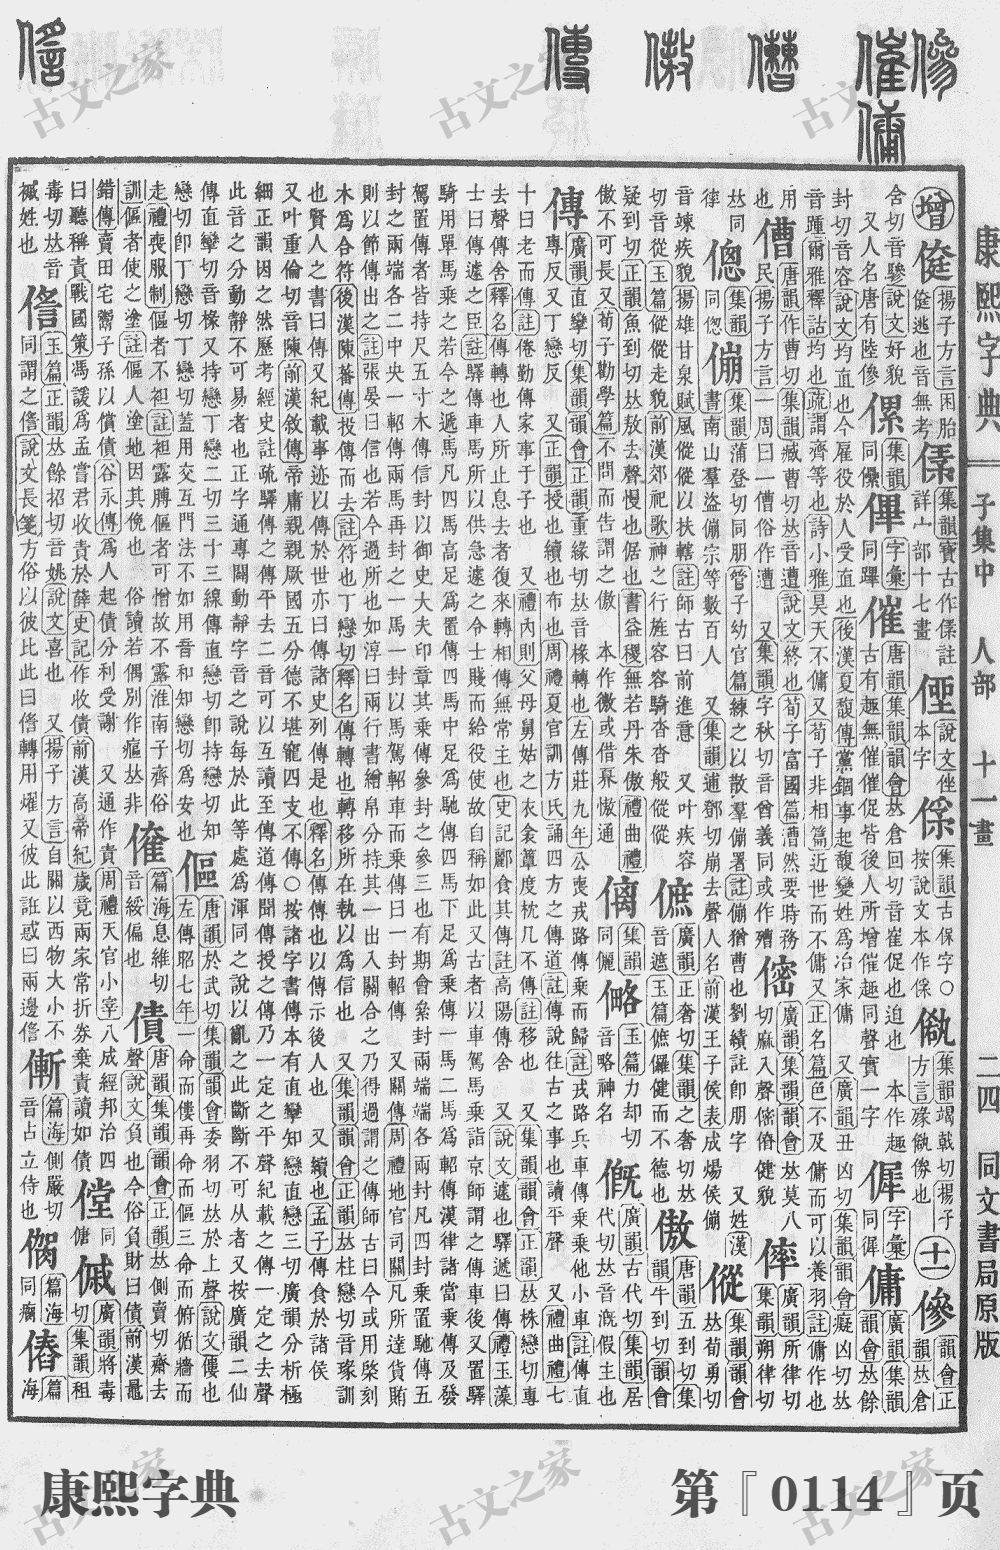 康熙字典 子集中 人部 十一畫 二四 同文書局原版
增 揚子方言 逃也音無考 集韻寶古作 註詳宀部十七畫 說文 本字 集韻古保字○按說文本作保 集韻竭戟切揚子方言 也 十一 傪 韻會正韻𠀤倉
含切音驂說文好貌又人名唐有陸傪 傫 集韻同儽 㒓 字彙同 催 唐韻集韻韻會𠀤倉回切音崔促也迫也 本作趣古有趣無催催促皆後人所增催趣同聲實一字 字彙同 傭 廣韻集韻韻會𠀤餘
封切音容說文均直也今雇役於人受直也後漢夏馥傳黨錮事起馥變姓爲冶家傭 又廣韻丑凶切集韻韻會癡凶切𠀤音踵爾雅釋詁均也疏謂齊等也詩小雅昊天不傭又荀子非相篇近世而不傭又正名篇色不及傭而可以養羽註傭作也
用也 傮 唐韻作曹切集韻臧曹切𠀤音遭說文終也荀子富國篇傮然要時務 揚子方言一周曰一傮俗作遭 又集韻字秋切音酋義同或作殧 廣韻集韻韻會𠀤莫八切麻入聲 健貌 㑼 集韻廣韻所律切朔律切
𠀤同 傯 集韻同偬 傰 集韻蒲登切同朋管子幼官篇練之以散羣傰署註傰猶曹也劉績註即朋字 又姓漢書南山羣盜傰宗等數百人 又集韻逋鄧切崩去聲人名前漢王子侯表成煬侯傰 傱 集韻韻會𠀤荀勇切
音竦疾貌揚雄甘泉賦風傱傱以扶轄註師古曰前進意 又叶疾容切音從玉篇傱傱走貌前漢郊祀歌神之行旌容容騎沓沓般傱傱 𠌮 廣韻正奢切集韻之奢切𠀤音遮玉篇 健而不德也 傲 唐韻五到切集韻韻會
疑到切正韻魚到切𠀤敖去聲慢也倨也書益稷無若丹朱傲禮曲禮傲不可長又荀子勸學篇不問而告謂之傲 本作𢕟或借奡慠通 𠌯 集韻同儷 㗉 玉篇力却切音略神名 㮣 廣韻古代切集韻居代切𠀤音漑假主也
傳 廣韻直攣切集韻韻會正韻重緣切𠀤音椽轉也左傳莊九年公喪戎路傳乘而歸註戎路兵車傳乘乘他小車註傳直專反又丁戀反 又正韻授也續也布也周禮夏官訓方氏誦四方之傳道註傳說往古之事也讀平聲 又禮曲禮七
十曰老而傳註倦勤傳家事于子也 又禮內則父母舅姑之衣衾簟席枕几不傳註移也 又說文遽也韻會正韻𠀤株戀切專去聲傳舍釋名傳轉也人所止息去者復來轉相傳無常主也史記酈食其傳註高陽傳舍 又集韻韻會正韻𠀤株戀切專
士曰傳遽之臣註驛傳車馬所以供急遽之令士賤而給役使故自稱如此又古者以車駕馬乘詣京師謂之傳車後又置驛騎用單馬乘之若今之遞馬凡四馬高足爲置傳四馬中足爲馳傳四馬下足爲乘傳一馬二馬爲軺傳漢律諸當乘傳及發
駕置傳者皆持尺五寸木傳信封以御史大夫印章其乘傳參封之參三也有期會絫封兩端端各兩封凡四封乘置馳傳五封之兩端各二中央一軺傳兩馬再封之一馬一封以馬駕軺車而乘傳曰一封軺傳 又關傳周禮地官司關凡所達貨賄
則以節傳出之註張晏曰信也若今過所也如淳曰兩行書繒帛分持其一出入關合之乃得過謂之傳師古曰今或用棨刻木爲合符後漢陳蕃傳投傳而去註符也丁戀切釋名傳轉也轉移所在執以爲信也 又集韻韻會正韻𠀤柱戀切音瑑訓
也賢人之書曰傳又紀載事迹以傳於世亦曰傳諸史列傳是也釋名傳傳也以傳示後人也 又續也孟子傳食於諸侯 又叶重倫切音陳前漢敘傳帝庸親親厥國五分德不堪寵四支不傳○按諸字書傳本有直攣知戀直戀三切廣韻分析極
細正韻因之然歷考經史註疏驛傳之傳平去二音可以互讀至傳道傳聞傳授之傳乃一定之平聲紀載之傳一定之去聲此音之分動靜不可易者也正字通專闢動靜字音之說每於此等處爲渾同之說以亂之此斷斷不可從者又按廣韻二仙
傳直攣切音椽又持戀丁戀二切三十三線傳直戀切即持戀切知戀切即丁戀切丁戀切蓋用交互門法不如用音和知戀切爲安也 傴 唐韻於武切集韻韻會委羽切𠀤於上聲說文僂也左傳昭七年一命而僂再命而傴三命而俯循牆而
走禮喪服制傴者不袒註袒露膊傴者可憎故不露淮南子齊俗訓傴者使之塗註傴人塗地因其俛也 俗讀若偶別作𤸷𠀤非 㒑 篇海息維切音綏偏也 債 唐韻集韻韻會正韻𠀤側賣切齋去聲說文負也今俗負財曰債前漢鼂
錯傳賣田宅鬻子孫以償債谷永傳爲人起債分利受謝 又通作責周禮天官小宰八成經邦治四曰聽稱責戰國策馮諼爲孟嘗君收責於薛史記作收債前漢高帝紀歲竟兩家常折券棄責讀如債 同傭 傶 廣韻將毒切集韻租
毒切𠀤音 㒂 玉篇正韻𠀤餘招切音姚說文喜也 又揚子方言自關以西物大小不 慚 篇海側嚴切音占立侍也 㑣 篇海同癇 偆 篇海
揻姓也 同謂之㒂說文長箋方俗以彼比此曰㒂轉用燿又彼此誑惑曰兩邊㒂
康熙字典
第『0114』页
古文之家